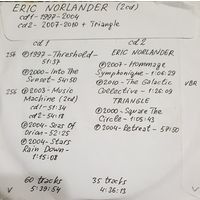 ERIC NORLANDER (2cd)
cd1-1997-2004
cd2-2007-2010 + Triangle
cd1
256 ℗1997-Threshold-
51:37
℗2000-Into The
Sunset-54:50
256 ℗2003-Music
Machine (2cd)
cd1-51:34
cd2-54:18
℗2004-Seas Of
Orion-52:25
℗2004-Stars
Rain Down-
1:15:08
60 tracks
V 5:39:54
cd2
ERIC NORLANDER
℗2007-Hommage
Symphonique-1:06:29
℗2010-The Galactic VBR
Collective-1:26:09
TRIANGLE
℗2000-Square The
Circle-1:05:43
℗2004-Retreat-57:50
35 tracks
4:36:13